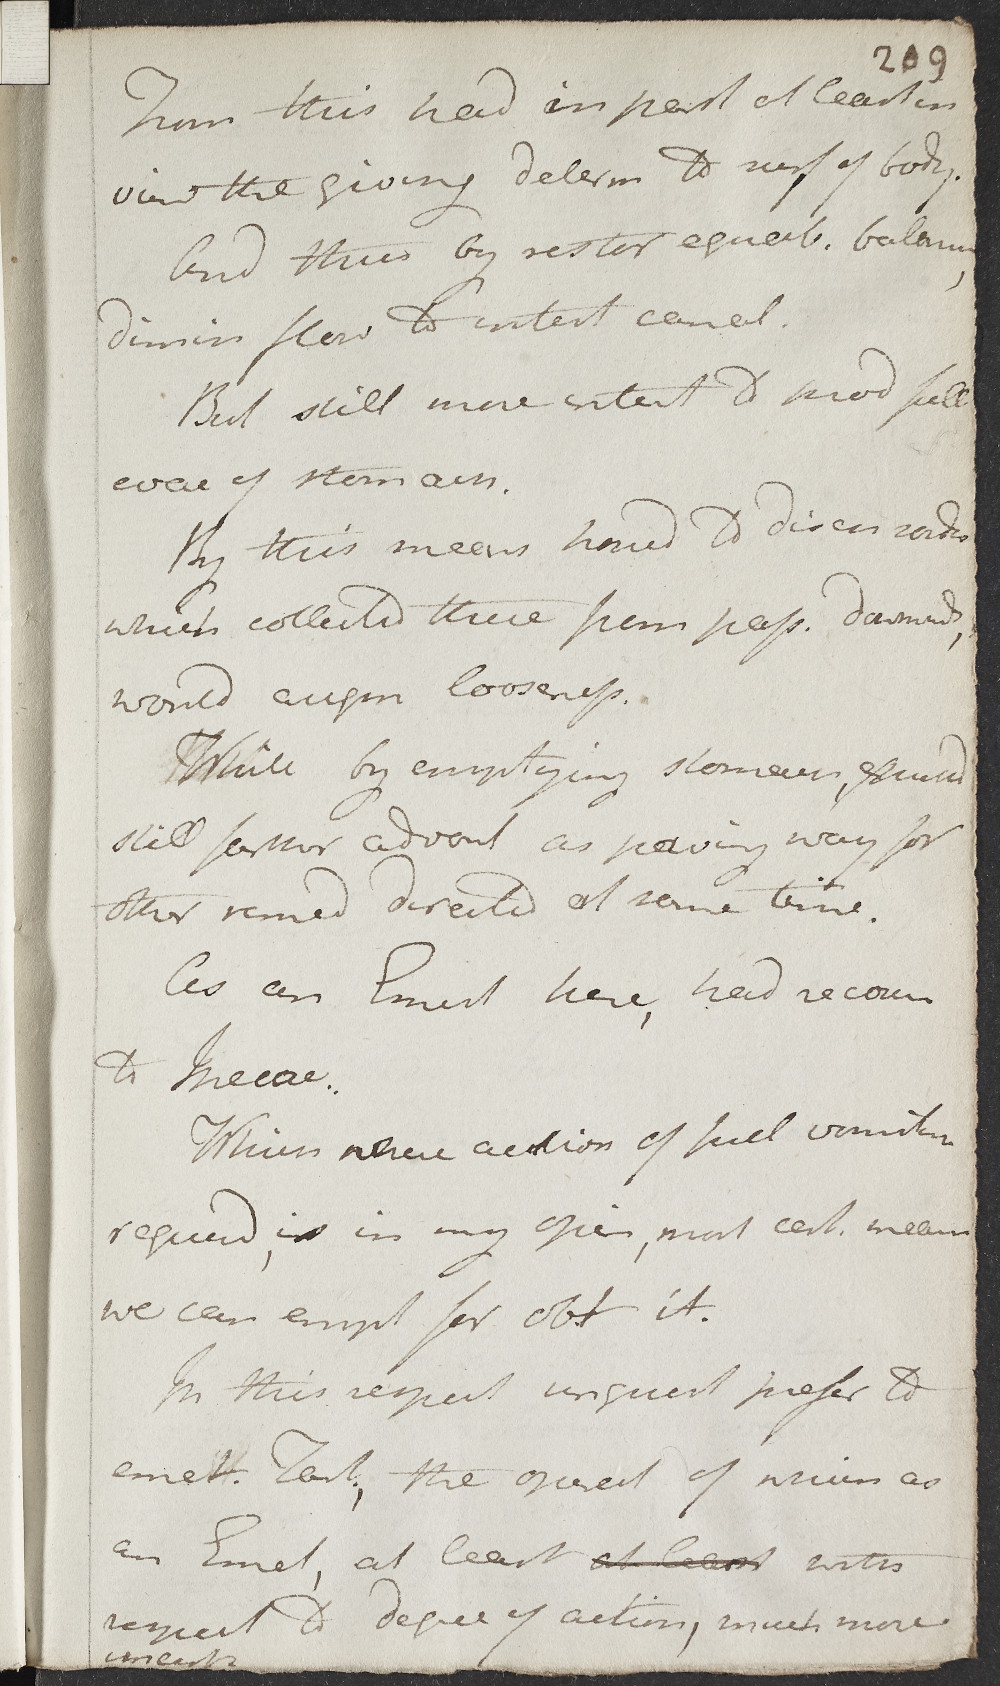 209
From this head in part at least in
view the giving determ to surf of body.
And thus by restor equab. balanc,
dimin flow to intest canal.
But still more intent to prod full
evac of stomach.
By this means hoped to discn sordes
which collected there from pass. downwds,
would augm looseness.
While by emptying stomach, expected
still farther advant as paving way for
other remed directed at same time.
As an Emet here, had recour
to Ipecac.
Which where action of full vomitin
requird, is in my opin, most cert. mean
we can empl for obt it.
In this respect unquest prefer to
emet. Tart., the operat of which as
an Emet, at least at least with
respect to degree of action, much more
uncert